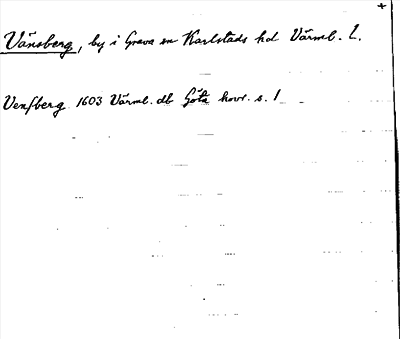 +
Vänsberg, by i Grava sn Karlstads hd Värml. L.
Vensberg 1603 Värml. db Göta hovr. s. 1